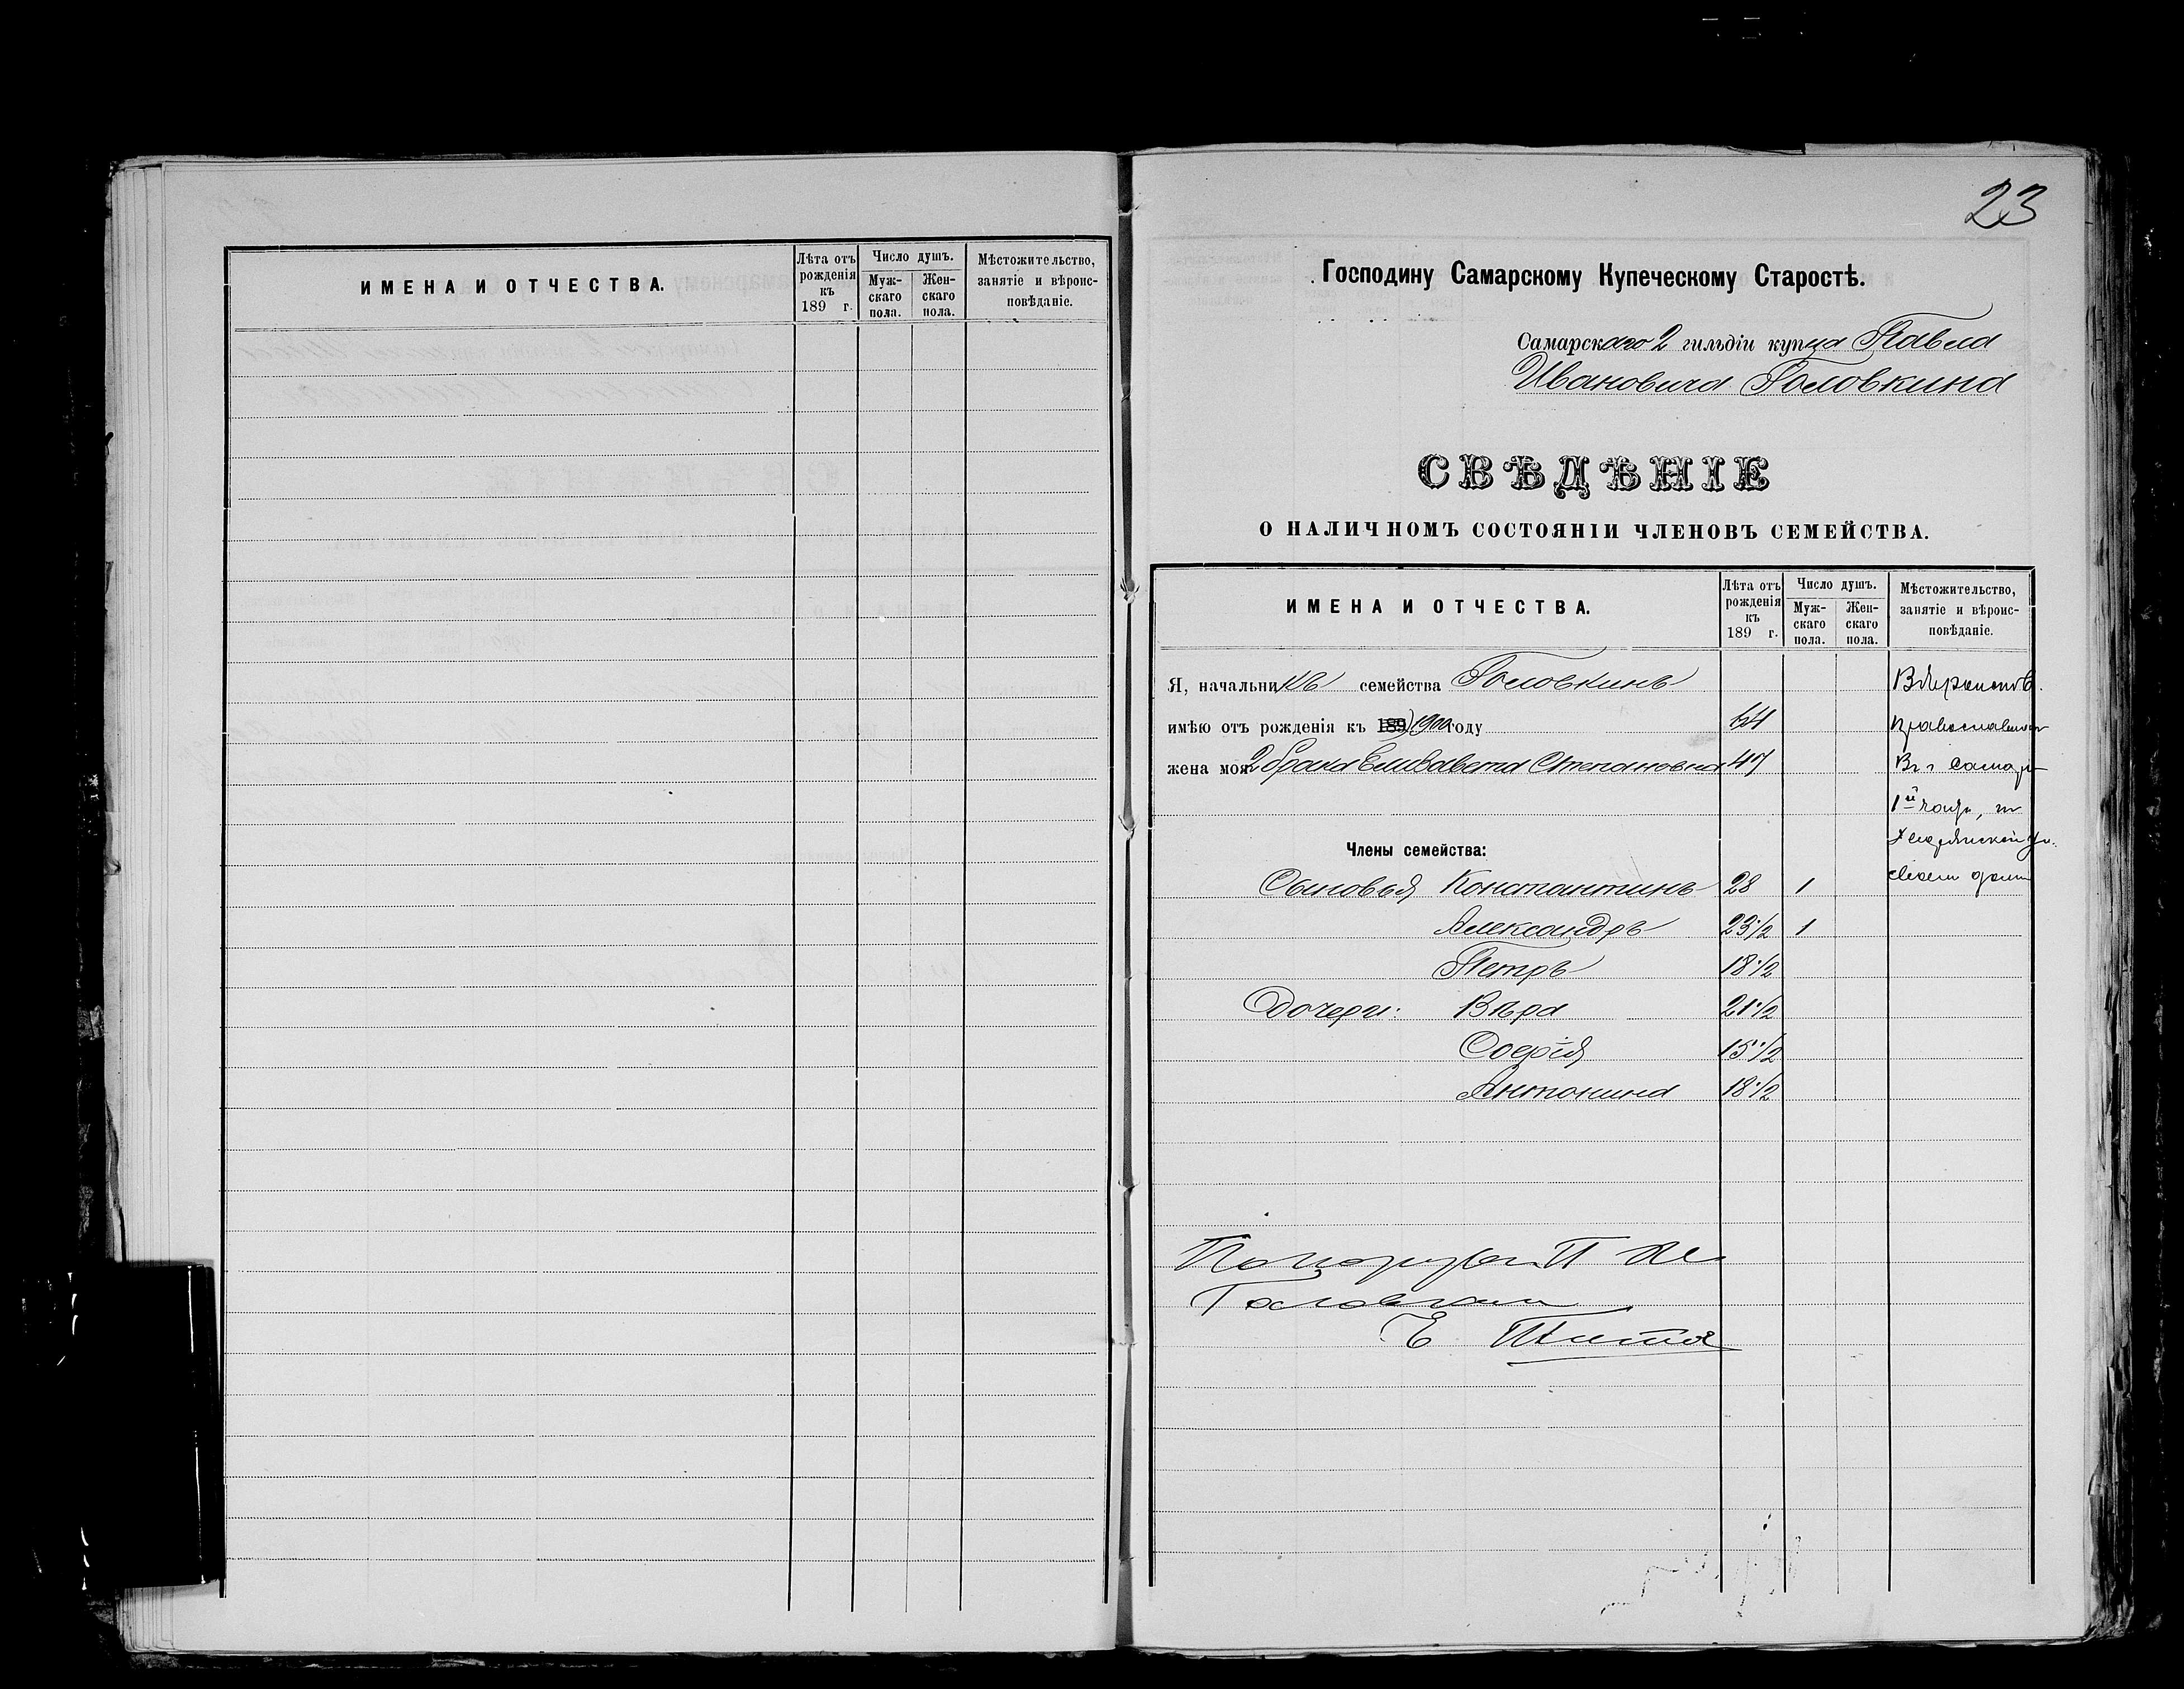 ИМЕНА И ОТЧЕСТВА.
Лѣта отъ рожденія къ 189 г.
Число душъ.
Мужскаго пола.
Женскаго пола.
Мѣстожительство, занятіе и вѣроисповѣданіе.
23
Господину Самарскому Купеческому Старостѣ.
Самарскаго 2 гильдіи купца Павла
Ивановича Головкина
СВѢДѢНІЕ
О НАЛИЧНОМЪ СОСТОЯНІИ ЧЛЕНОВЪ СЕМЕЙСТВА.
ИМЕНА И ОТЧЕСТВА.
Лѣта отъ рожденія къ 189 г.
Число душъ.
Мужскаго пола.
Женскаго пола.
Мѣстожительство, занятіе и вѣроисповѣданіе.
Я, начальникъ семейства Головкинъ
имѣю отъ рожденія къ 189) 1900 году
жена моя 2 брака Елизавета Степановна 47
Члены семейства:
Сыновья Константинъ 28 1
Александръ 23 1/2 1
Петръ 18 1/2
Дочери: Вѣра 21 1/2
Софія 15 1/2
Антонина 18 1/2
Головкин